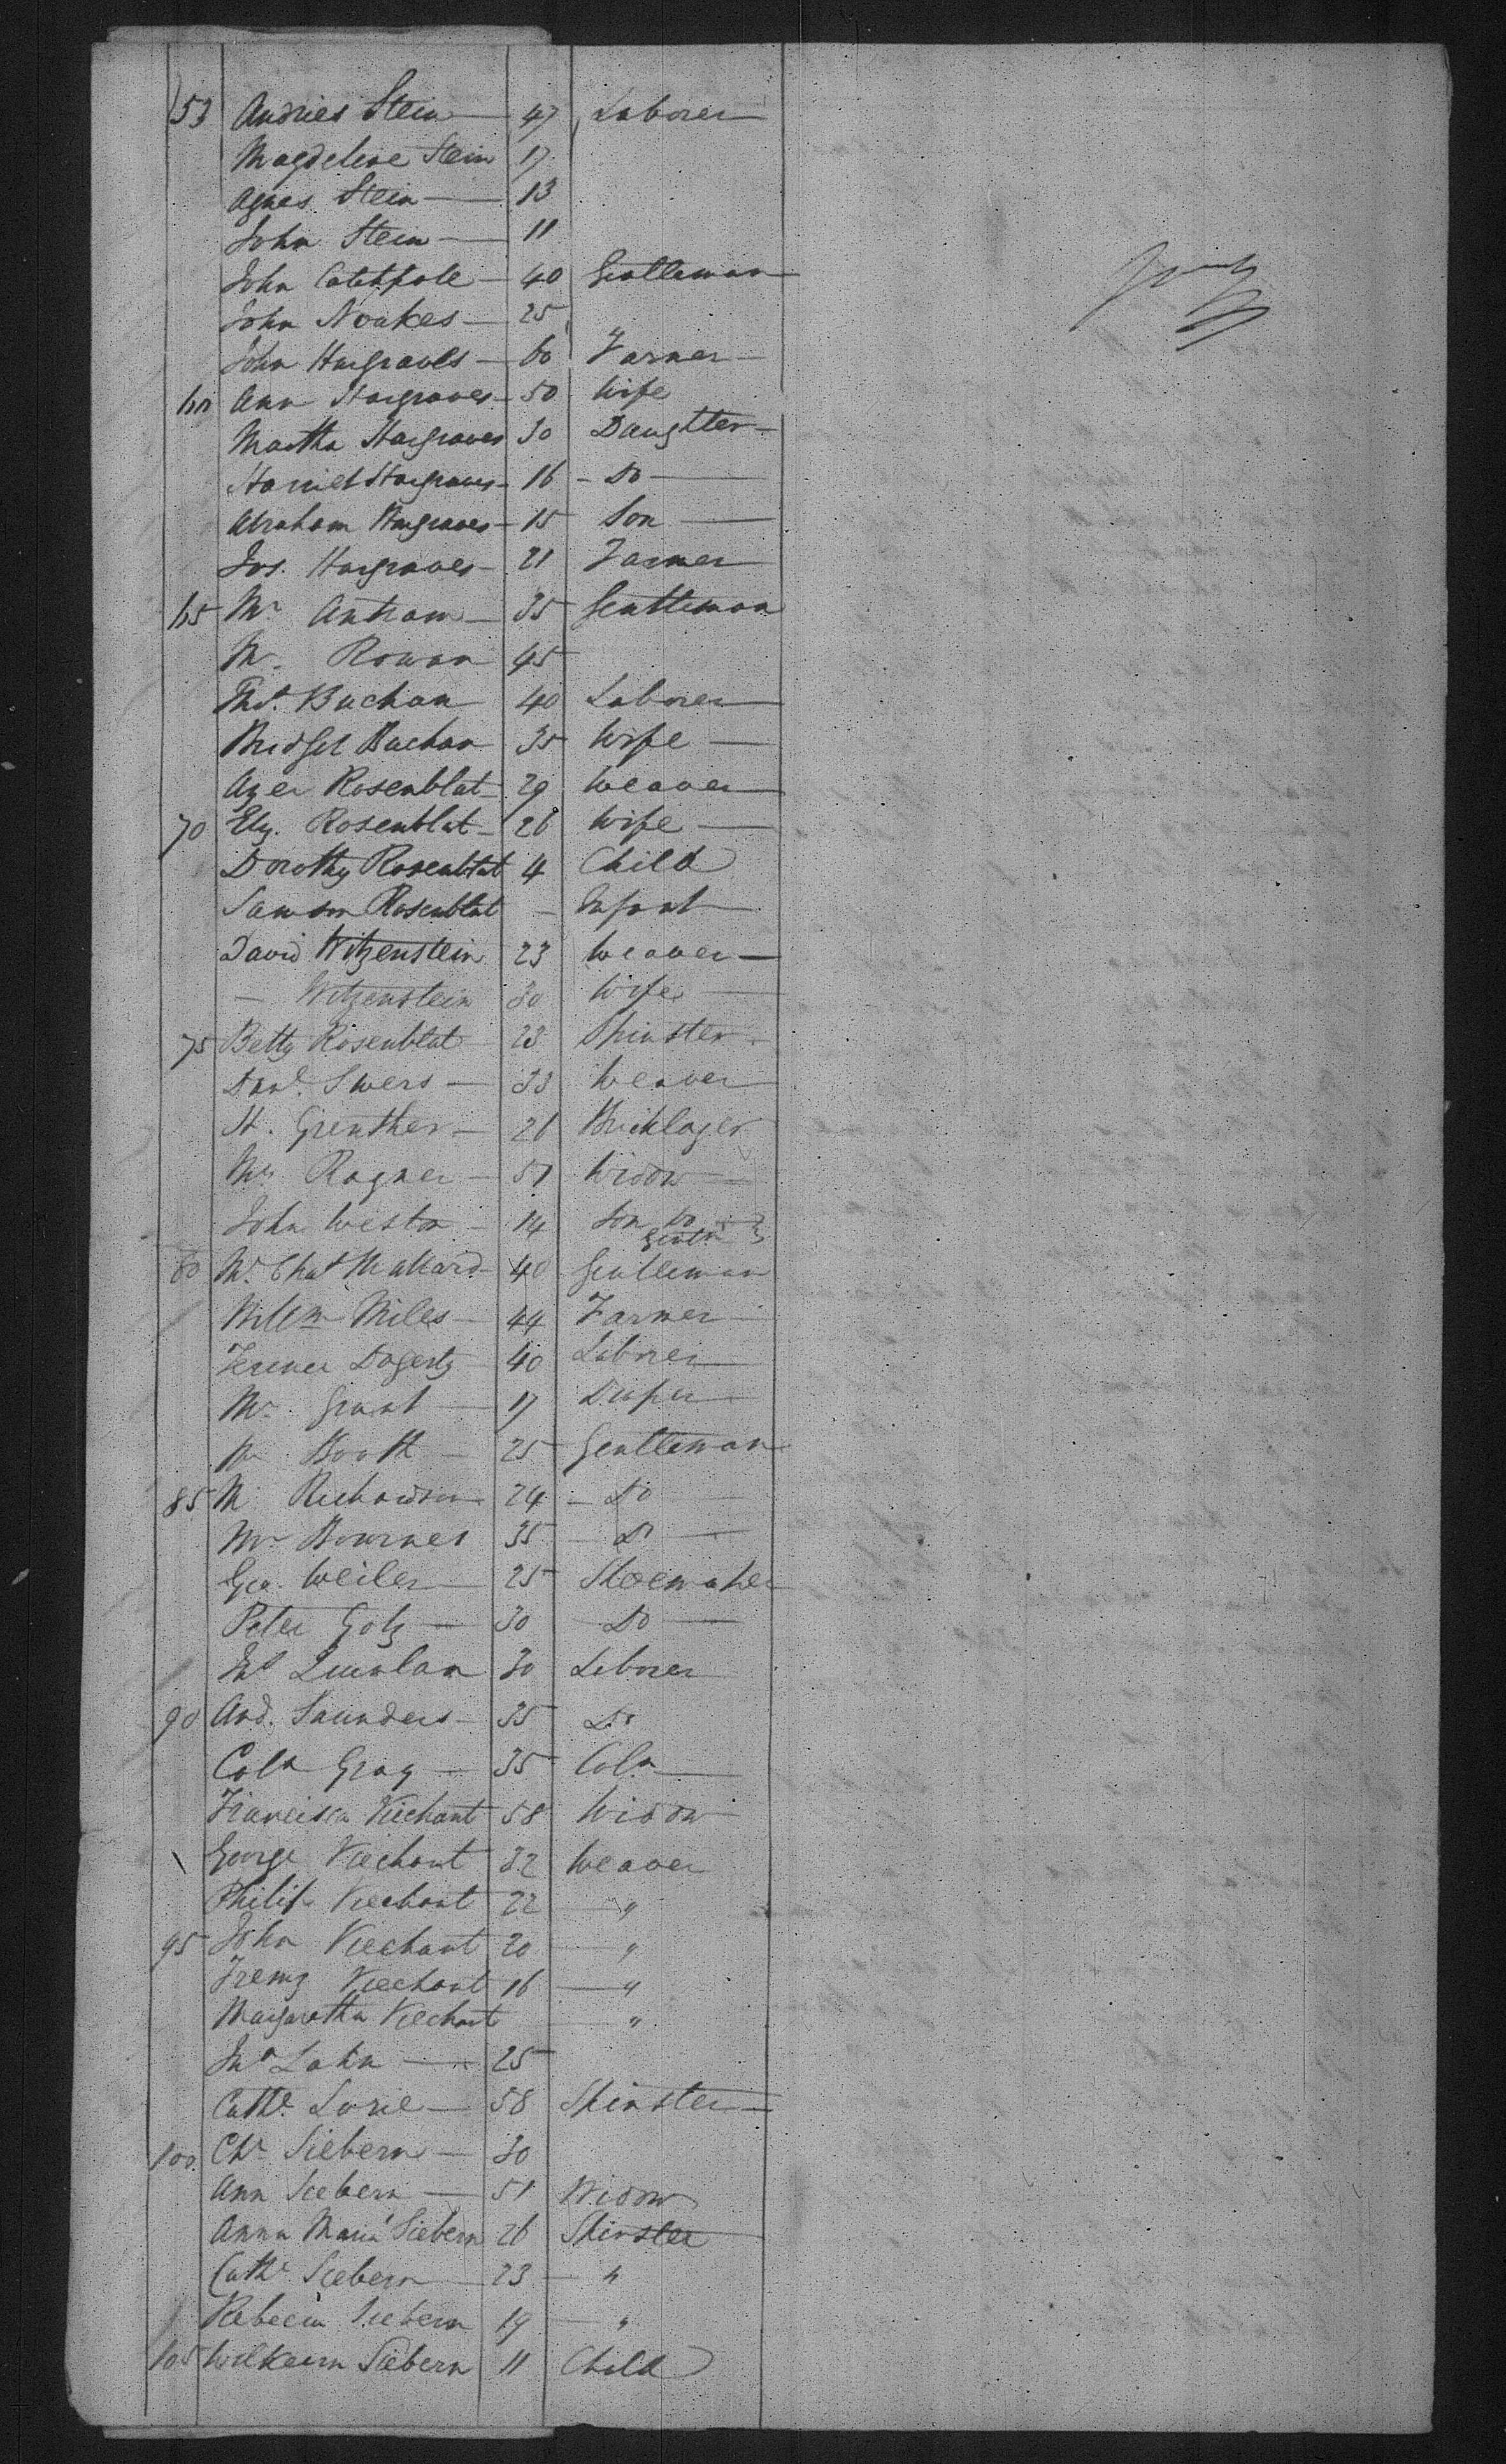 53 Andries Stein — 47 Laborer
Magdeline Stein 17
Agnes Stein — 13
John Stein — 11
John Catchpole — 40 Gentleman
John Noakes — 25
John Hargraves — 60 Farmer —
60 Ann Hargraves — 50 Wife
Martha Hargraves 30 Daughter —
Harriet Hargraves — 16 — Do —
Abraham Hargraves — 15 Son —
Jos. Hargraves — 21 Farmer
65 Mr Antram — 35 Gentleman
Mr Rowan 45
Thos. Buchan 40 Laborer
Bridget Buchan 35 Wife —
Azer Rosenblat — 29 Weaver
70 Elz. Rosenblat — 26 Wife —
Dorothy Rosenblat 4 Child
Samson Rosenblat — Infant
David Witzenstein 23 Weaver —
— Witzenstein 30 Wife —
75 Betty Rosenblat 23 Spinster —
Danl. Swers — 33 Weaver
H. Grenther — 26 Bricklayer
Mrs Rayner — 51 Widow —
John Weston — 14 Son Do —
Gentn
80 Mr. Chas Mallard — 40 Gentleman
Willm Miles — 44 Farmer —
Terence Dogerty 40 Laborer
Mr. Grant — 17 Draper
Mr Booth — 25 Gentleman
85 Mr Richardson 24 — Do —
Mr Bournes 35 — Do —
Geo. Weiler — 25 Shoemaker
Peter Gotz — 30 Do —
Ed Quinlan 30 Laborer
90 And. Saunders — 35 Do
Coln Gray — 35 Coln —
Francisca Viechant 58 Widow
George Viechant 32 Weaver
Philip Viechant 22 — "
95 John Viechant 20 — "
Frenz Viechant 16 — "
Margaretha Viechant — "
Jno Lahn — 25
Cathe. Lorie — 58 Spinster —
100 Chr Siebern — 30
Ann Siebern — 51 Widow
Anna Maria Siebern 26 Spinster
Cathe Siebern — 23 — "
Rebecca Siebern 19 — "
105 Wilkeern Siebern 11 Child